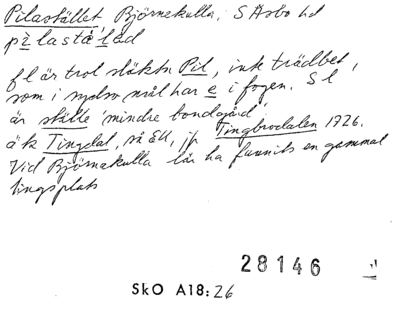 Pilastället Björnekulla, S Åsbo hd
pèlastä'led
fl är trol släktn Pil, ink trädbet,
som i sydsv mål har e i fogen. Sl
är ställe 'mindre bondgård',
äk Tingdal, så EK, jp Tingbrodalen 1726.
Vid Björnekulla lär ha funnits en gammal
tingsplats
28146
SkO A18:26